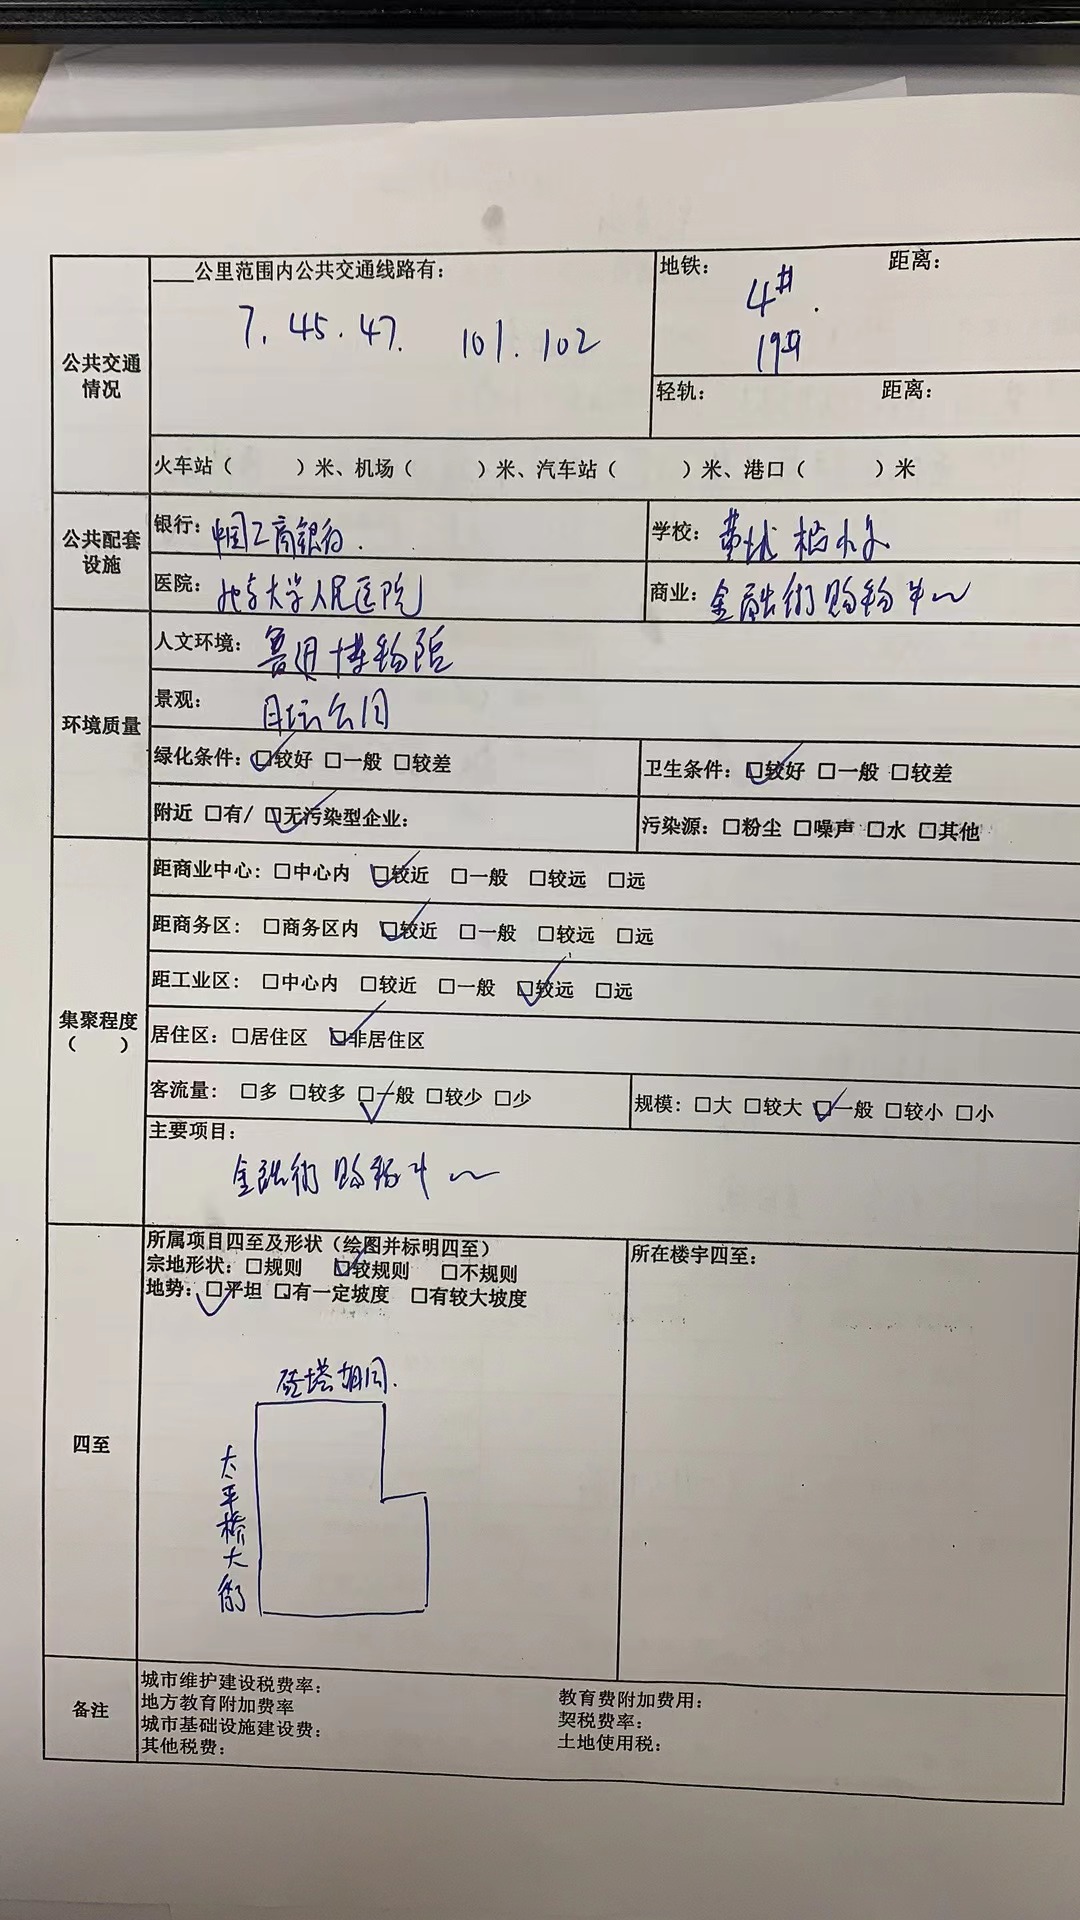 ____公里范围内公共交通线路有：
地铁： 距离：
7. 45. 47. 101. 102
4#.
19#
公共交通
情况
轻轨： 距离：
火车站（ ）米、机场（ ）米、汽车站（ ）米、港口（ ）米
公共配套
设施
银行：中国工商银行.
学校：
医院：北京大学人民医院
商业：金融街购物中心
环境质量
人文环境：鲁迅博物院
景观：月坛公园
绿化条件：☑较好 □一般 □较差
卫生条件：☑较好 □一般 □较差
附近 □有/ ☑无污染型企业：
污染源：□粉尘 □噪声 □水 □其他
集聚程度
（ ）
距商业中心：□中心内 ☑较近 □一般 □较远 □远
距商务区： □商务区内 ☑较近 □一般 □较远 □远
距工业区： □中心内 □较近 □一般 ☑较远 □远
居住区：□居住区 ☑非居住区
客流量： □多 □较多 ☑一般 □较少 □少
规模：□大 □较大 ☑一般 □较小 □小
主要项目：
金融街购物中心
四至
所属项目四至及形状（绘图并标明四至）
宗地形状：□规则 ☑较规则 □不规则
地势：☑平坦 □有一定坡度 □有较大坡度
所在楼宇四至：
砖塔胡同.
太平桥大街
备注
城市维护建设税费率：
地方教育附加费率
城市基础设施建设费：
其他税费：
教育费附加费用：
契税费率：
土地使用税：